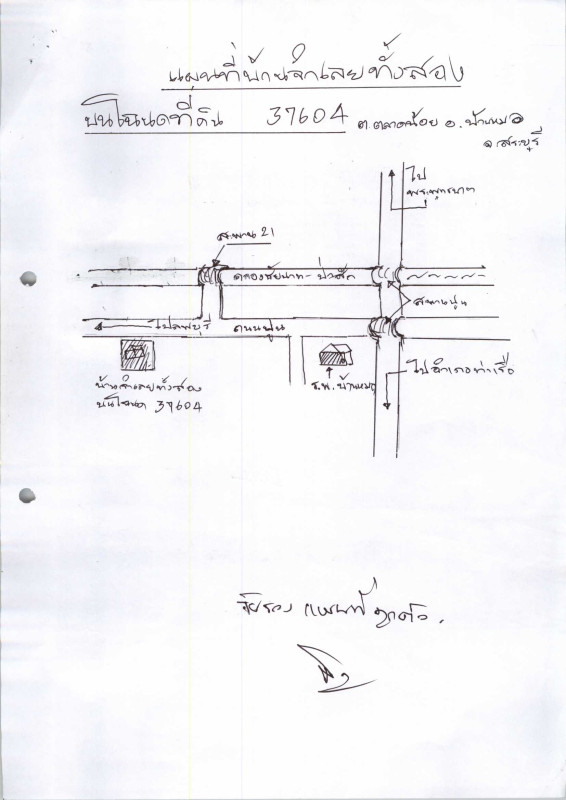 แผนที่บ้านจำเลยทั้งสอง
บนโฉนดที่ดิน 37604 ต.ตลาดน้อย อ.บ้านหมอ
จ.สระบุรี
ไป
พระพุทธบาท
สะพาน 21
คลองชัยนาท-ป่าสัก
สะพานปูน
ไปลพบุรี
ถนนปูน
บ้านจำเลยทั้งสอง
บนโฉนด 37604
ร.พ.บ้านหมอ
ไปอำเภอท่าเรือ
รับรอง แผนที่ ถูกต้อง